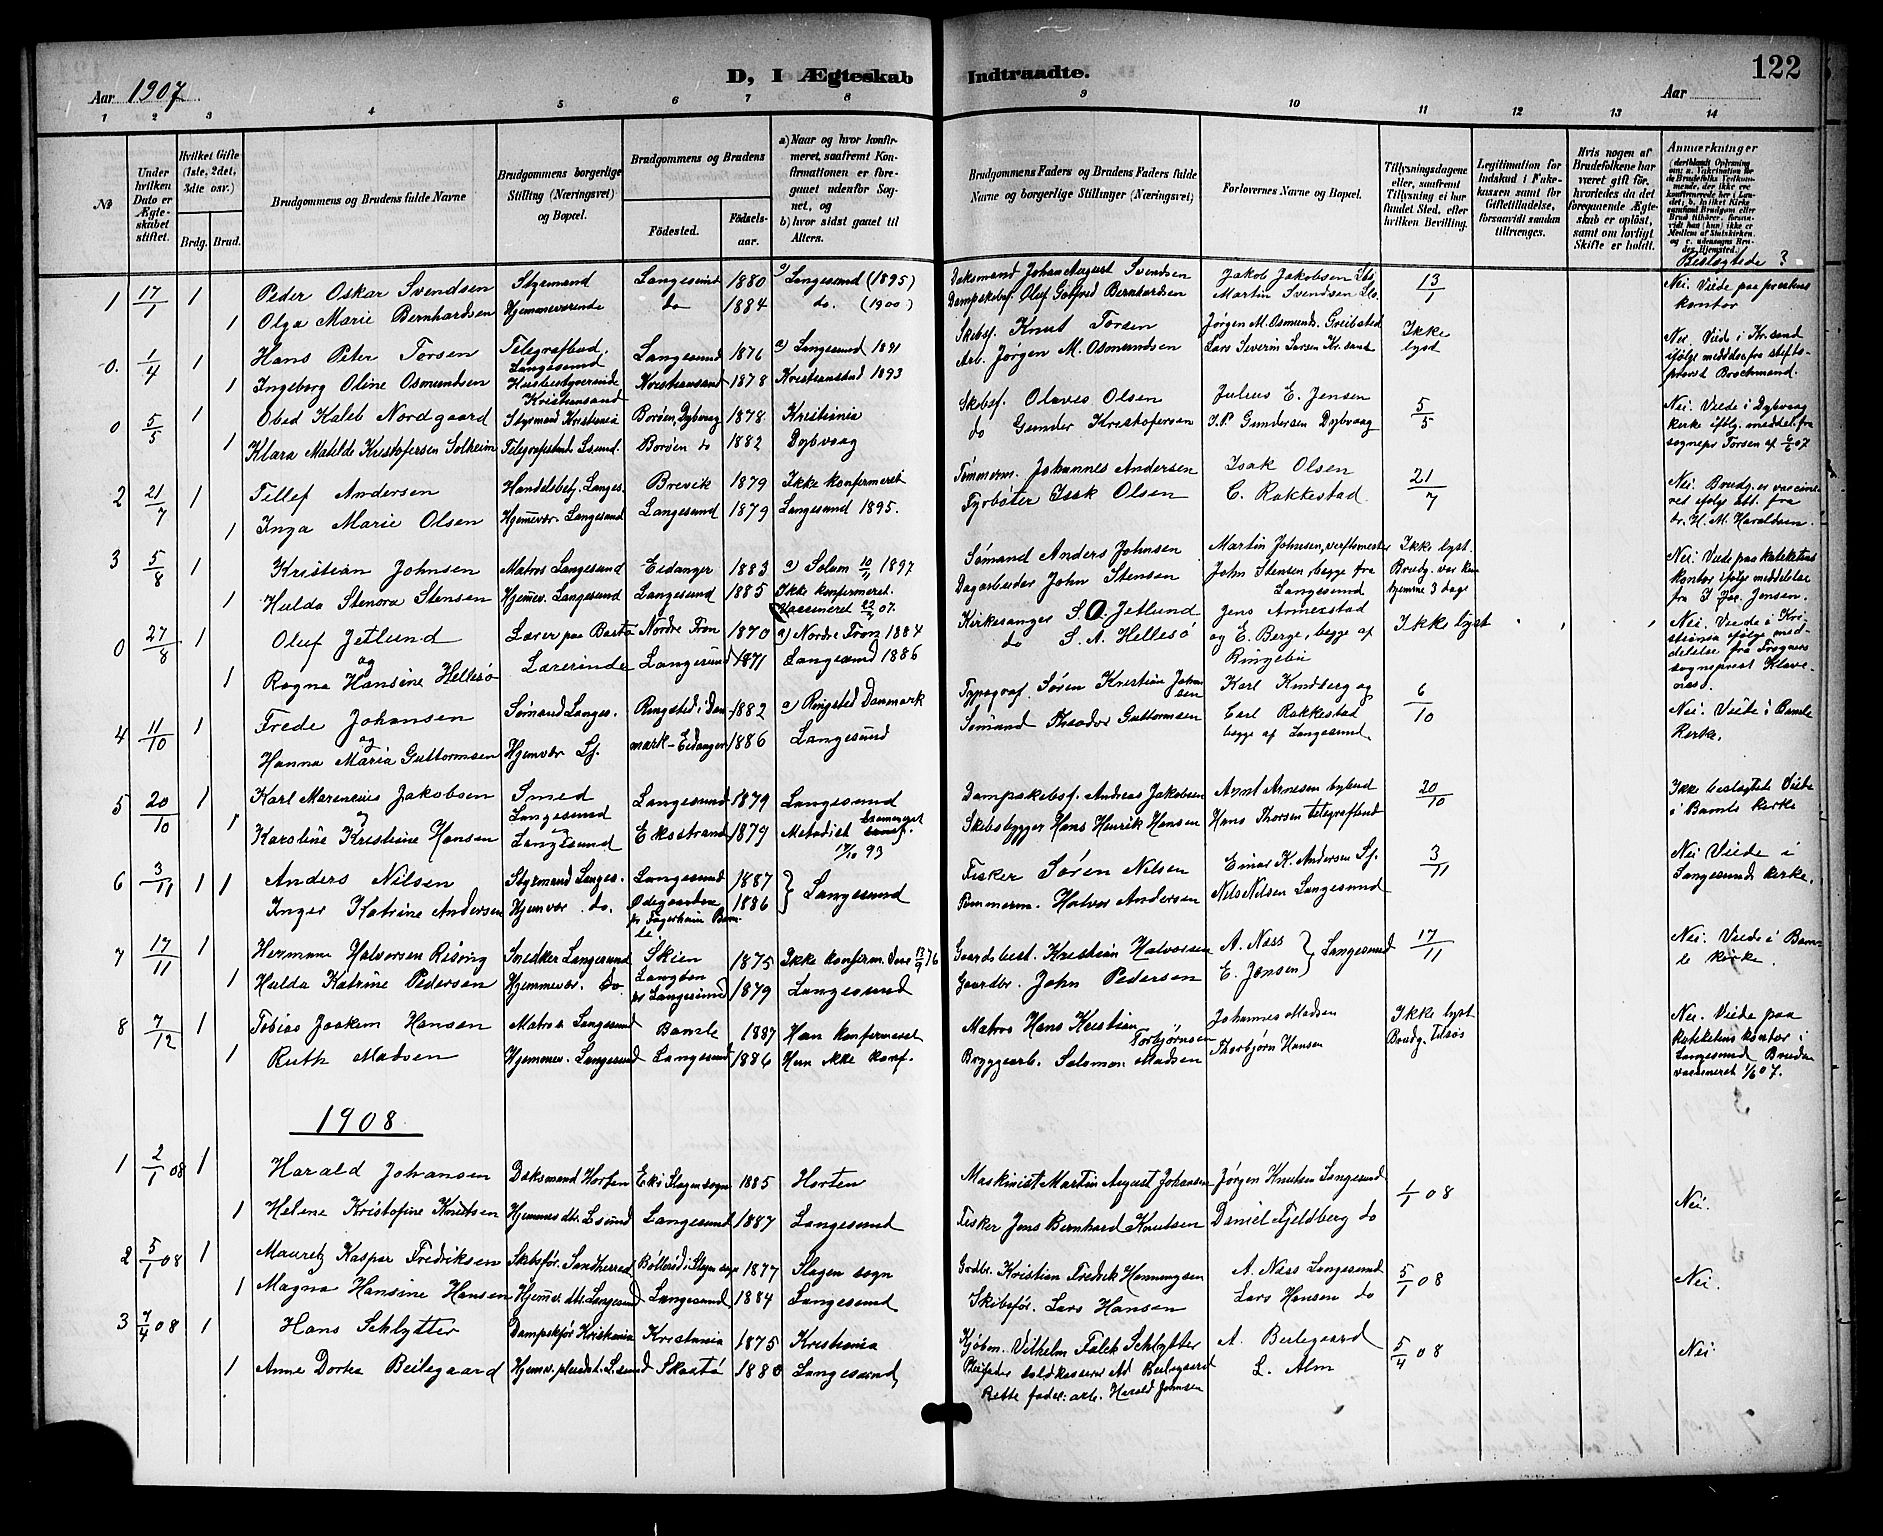 122
D, I Ægteskab Indtraadte.
Aar 1907
Aar
1 2 3 4 5 6 7 8 9 10 11 12 13 14
No
Under hvilken Dato er Ægteskabet stiftet.
Hvilket Gifte (1ste, 2det, 3die osv.)
Brdg. Brud.
Brudgommens og Brudens fulde Navne
Brudgommens borgerlige Stilling (Næringsvei) og Bopæl.
Brudgommens og Brudens
Födested.
Födselsaar.
a) Naar og hvor konfirmeret, saafremt Konfirmationen er foregaaet udenfor Sognet, og
b) hvor sidst gaaet til Alters.
Brudgommens Faders og Brudens Faders fulde Navne og borgerlige Stillinger (Næringsvei)
Forlovernes Navne og Bopæl.
Tillysningsdagene eller, saafremt Tillysning ei har fundet Sted, efter hvilken Bevilling.
Legitimation for Indskud i Enkekassen samt for Giftetilladelse, forsaavidt saadan tiltrænges.
Hvis nogen af Brudefolkene har været gift för, hvorledes da det foregaaende Ægteskab er oplöst, samt om lovligt Skifte er holdt.
Anmærkninger
Beslægtede ?
1 17/1 1 Peder Oskar Svendsen Styrmand Langesund 1880 a) Langesund (1895) Daksmand Johan August Svendsen Jakob Jakobsen 13/1 Nei. Viede paa prestens kontor
1 Olga Marie Bernhardsen Hjemmeværende do 1884 do. (1900) Dampskibsf. Oluf Gotfred Bernhardsen Martin Svendsen
0. 1/4 1 Hans Peter Torsen Telegrafbud. Langesund Langesund 1876 a) Langesund 1891 Skibsf. Knut Torsen Jørgen M. Osmunds. Greibsted Ikke lyst Nei. Viede i Kr.sand ifölge meddelse fra stiftsprovst Brochmand.
1 Ingeborg Oline Osmundsen Husbestyrerinde Kristiansand Kristiansand 1878 Kristiansand 1893 Arb. Jørgen M. Osmundsen Lars Severin Larsen Kr.sand
0 5/5 1 Obed Kaleb Nordgaard Styrmand Kristiania Borøen, Dybvaag 1878 Kristiania Skibsf. Olaves Olsen Julius E. Jensen 5/5 Nei. Viede i Dybvaag kirke iflg. meddel. fra sognepr Torsen af 6/5 07
1 Klara Matilde Kristofersen Solheim Telegrafistinde Lsund. Borøen do 1882 Dybvaag do Gunder Kristofersen I. P. Gundersen Dybvaag
2 21/7 1 Tellef Andersen Handelsbetj. Langes. Brevik 1879 Ikke konfirmeret Tømmerm. Johannes Andersen Isak Olsen 21/7 Nei. Brudg. er vaccineret ifølge att. fra dr. H. M. Haraldsen.
1 Inga Marie Olsen Hjemmevær. Langesund Langesund 1879 Langesund 1895. Fyrbøter Isak Olsen C. Rakkestad
3 5/8 1 Kristian Johnsen Matros Langesund Eidanger 1883 a) Solum 10/11 1897 Sømand Anders Johnsen Martin Johnsen, verftsmester Ikke lyst. Brudg. var kun hjemme 3 dage Nei. Viede paa kateketens kontor ifölge meddelelse fra I. Joc. Jensen.
1 Hulda Stenora Stensen Hjemmev. Langesund Langesund 1885 Ikke konfirmeret. Vassineret 22/7 07. Dagarbeider John Stensen John Stensen, begge fra Langesund
0 27/8 1 Oluf Jetlund Lærer paa Barta Nordre Fron 1870 a) Nordre Fron 1884 Kirkesanger S. O. Jetlund Jens Armerstad Ikke lyst Nei. Viede i Kristiania ifølge meddelelse fra Frogners sogneprest Klaveness.
og
1 Ragna Hansine Hellesø Lærerinde Langesund 1871 Langesund 1886 do S. A. Hellesö og E. Berge, begge af Ringebu
4 11/10 1 Frede Johansen Sømand Langes. Ringsted i Danmark 1882 a) Ringsted Danmark Typograf Søren Kristian Johansen Karl Kindberg og 6/10 Nei. Viede i Bamle Kirke.
og
Hanna Maria Guttormsen Hjemvær Lf. Eidanger 1886 Langesund Sømand Theodor Guttormsen Carl Rakkestad begge af Langesund.
5 20/10 1 Karl Marenius Jakobsen Smed Langesund Langesund 1879 Langesund Dampskibsf. Andreas Jakobsen Arnt Arnesen bybud 20/10 Ikke beslægtede Viede i Bamle kirke
og
1 Karoline Kristine Hansen Langesund Eksstrand 1879 Metodist 17/10 93 Skibsbygger Hans Henrik Hansen Hans Thorsen telegrafbud
6 3/11 1 1 Anders Nilsen Styrmand Langes. Langesund 1887 Langesund Fisker Søren Nilsen Einar K. Andersen Lf. 3/11 Nei Viede i Langesunds kirke.
Inger Katrine Andersen Hjemvær. do. Ødegaarden pr Fagerheim Bamle 1886 Tømmerm. Halvor Andersen Nils Nilsen Langesund
7 17/11 1 Herman Halvorsen Rising Snedker Langesund Skien 1875 Ikke konfirm. Gaardsbest. Kristian Halvorsen A. Næss Langesund 17/11 Nei. Viede i Bamle kirke.
1 Hulda Katrine Pedersen Hjemmevær. do. Langøen pr Langesund 1879 Langesund Gaardbr. John Pedersen E. Jensen
8 7/12 1 Tobias Joakim Hansen Matros Langesund Bamle 1887 Han konfirmeret Matros Hans Kristian Torbjørnsen Johannes Madsen Ikke lyst Brudg. tilsøs Nei. Viede paa Katekens kontor i Langesund Bruden vassineret 1/6 07.
1 Ruth Madsen Hjemmev. Langesund Langesund 1886 Hun ikke konf. Bryggearb. Salomon Madsen Thorbjørn Hansen
1908
1 2/1 08 1 Harald Johansen Daksmand Horten Eki Slagen sogn 1885 Horten Maskinist Martin August Johansen Jørgen Knutsen Langesund 1/1 08 Nei.
1 Helene Kristofine Knutsen Hjemmev. dtr. Lsund Langesund 1887 Langesund Fisker Jens Bernhard Knutsen Daniel Fjeldberg do
2 5/1 08 1 Mauretz Kaspar Fredriksen Skibsför. Sandherred Böllerød i Slagen sogn 1877 Slagen sogn Grdbr. Kristian Fredrik Henningsen A. Næss Langesund 5/1 08 Nei.
1 Magna Hansine Hansen Hjemv. dtr. Langesund Langesund 1884 Langesund Skibsför. Lars Hansen Lars Hansen do
3 7/4 08 1 Hans Schlytter Dampskför Kristiania Kristiania 1875 Kristiania Kjöbm. Vilhelm Falck Schlytter A. Beilegaard 5/4 08 Nei
1 Anne Dortea Beilegaard Hjemv. pleiedat. Lsund Skaatø 1880 Langesund, Pleifader toldkasserer Ad Beilegaard L. Alm
Rette fader: arb. Harald Johnsen